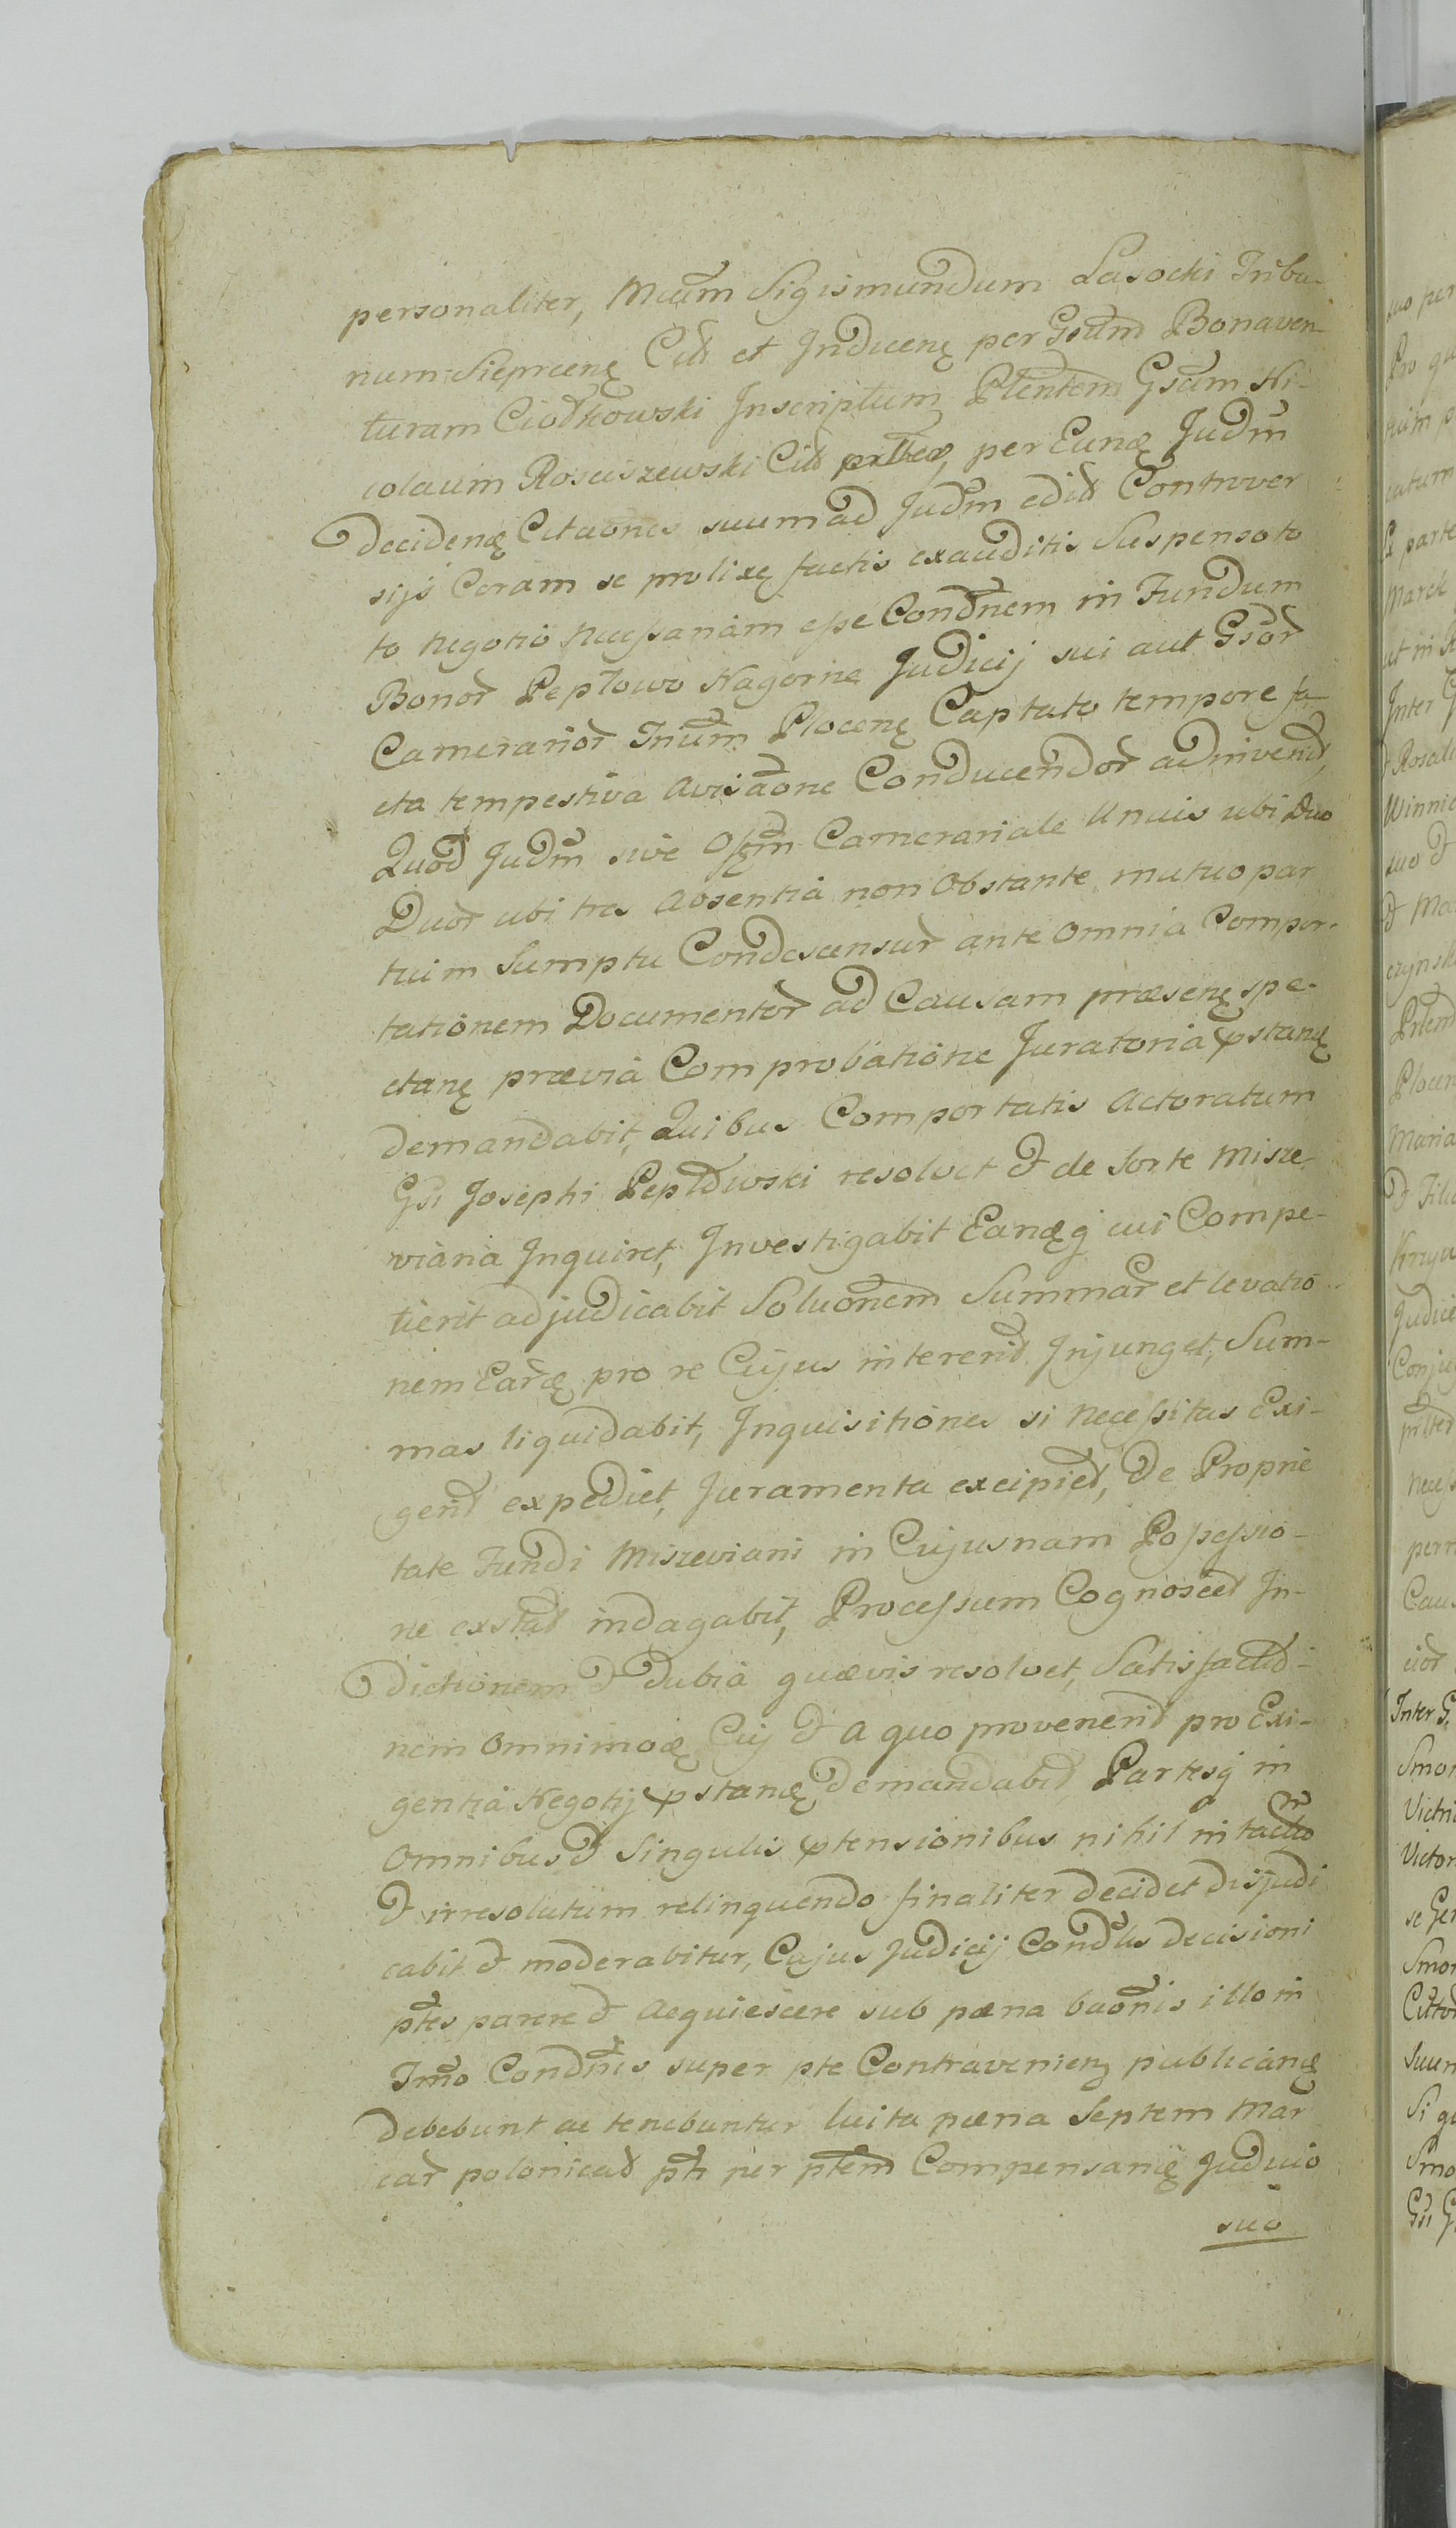 personaliter, Mcum Sigismundum Lasocki Tribu-
num Sieprcenę Citt et Inducenę per Gsum Bonaven-
turam Ciołkowski Inscriptum Plentem Gsum Ni-
colaum Rosciszewski Citt prltter, per Eunę Judm
decidenę Citaones suum ad Judm edid Controver
sijs Coram se prolixę factis exauditis Suspenso to
to negotio necessariam esse Condnem in Fundum
Bonor Pepłowo Nagorne Judicij sui aut Gsor
Camerarior Trium Plocenę Captato tempore fa-
cta tempestiva avisaone Conducendor adinvenit,
Quod Judm sive Offm Camerariale Unius ubi Duo
Duor ubi tres absentia non Obstante mutuo par
tium Sumptu Condescensur ante omnia Compor-
tationem Documentor ad Causam præsenę spe-
ctanę prævia Comprobatione Juratoria pstanę
demandabit, Quibus Comportatis Actoratum
Gsi Josephi Pepłowski resolvet & de Sorte Misze-
viana Inquiret, Investigabit Eanęq cui Compe-
tierit adjudicabit Soluonem Summar et levatio
nem Earę pro re Cujus intererit Injunget, Sum-
mas liquidabit, Inquisitiones si necessitas Exi-
gerit expediet, Juramenta excipiet, de Proprie
tate Fundi Miszeviani in Cujusnam Possessio-
ne exstat indagabit, Processum Cognoscet In-
dictionem & dubia quævis resolvet, Satisfactio-
nem Omnimodę Cuj & a quo provenerit pro Exi-
gentia Negotij pstanę demandabit Partesq in
Omnibus & Singulis ptensionibus nihil intactum
& irresolutum relinquendo finaliter decidet disjudi
cabit & moderabitur, Cujus Judicij Condlis decisioni
ptes parere & Acquiescere sub pæna baonis illo in
Tmo Condnis super pte Contravenienę publicanę
debebunt ac tenebuntur luita pæna Septem Mar
car polonicad pti per ptem Compensanę Judicio
suo